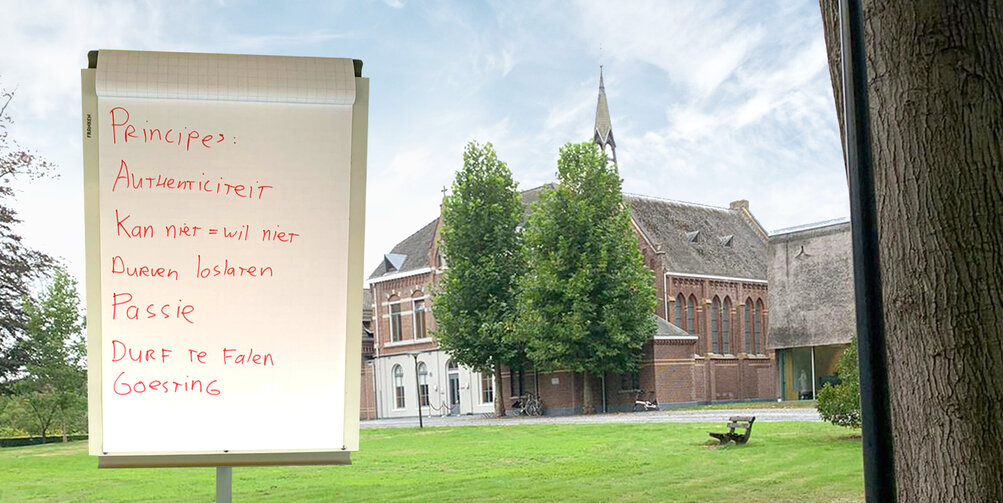 Principes:
Authenticiteit
Kan niet = wil niet
Durven loslaten
Passie
Durf te Falen
Goesting